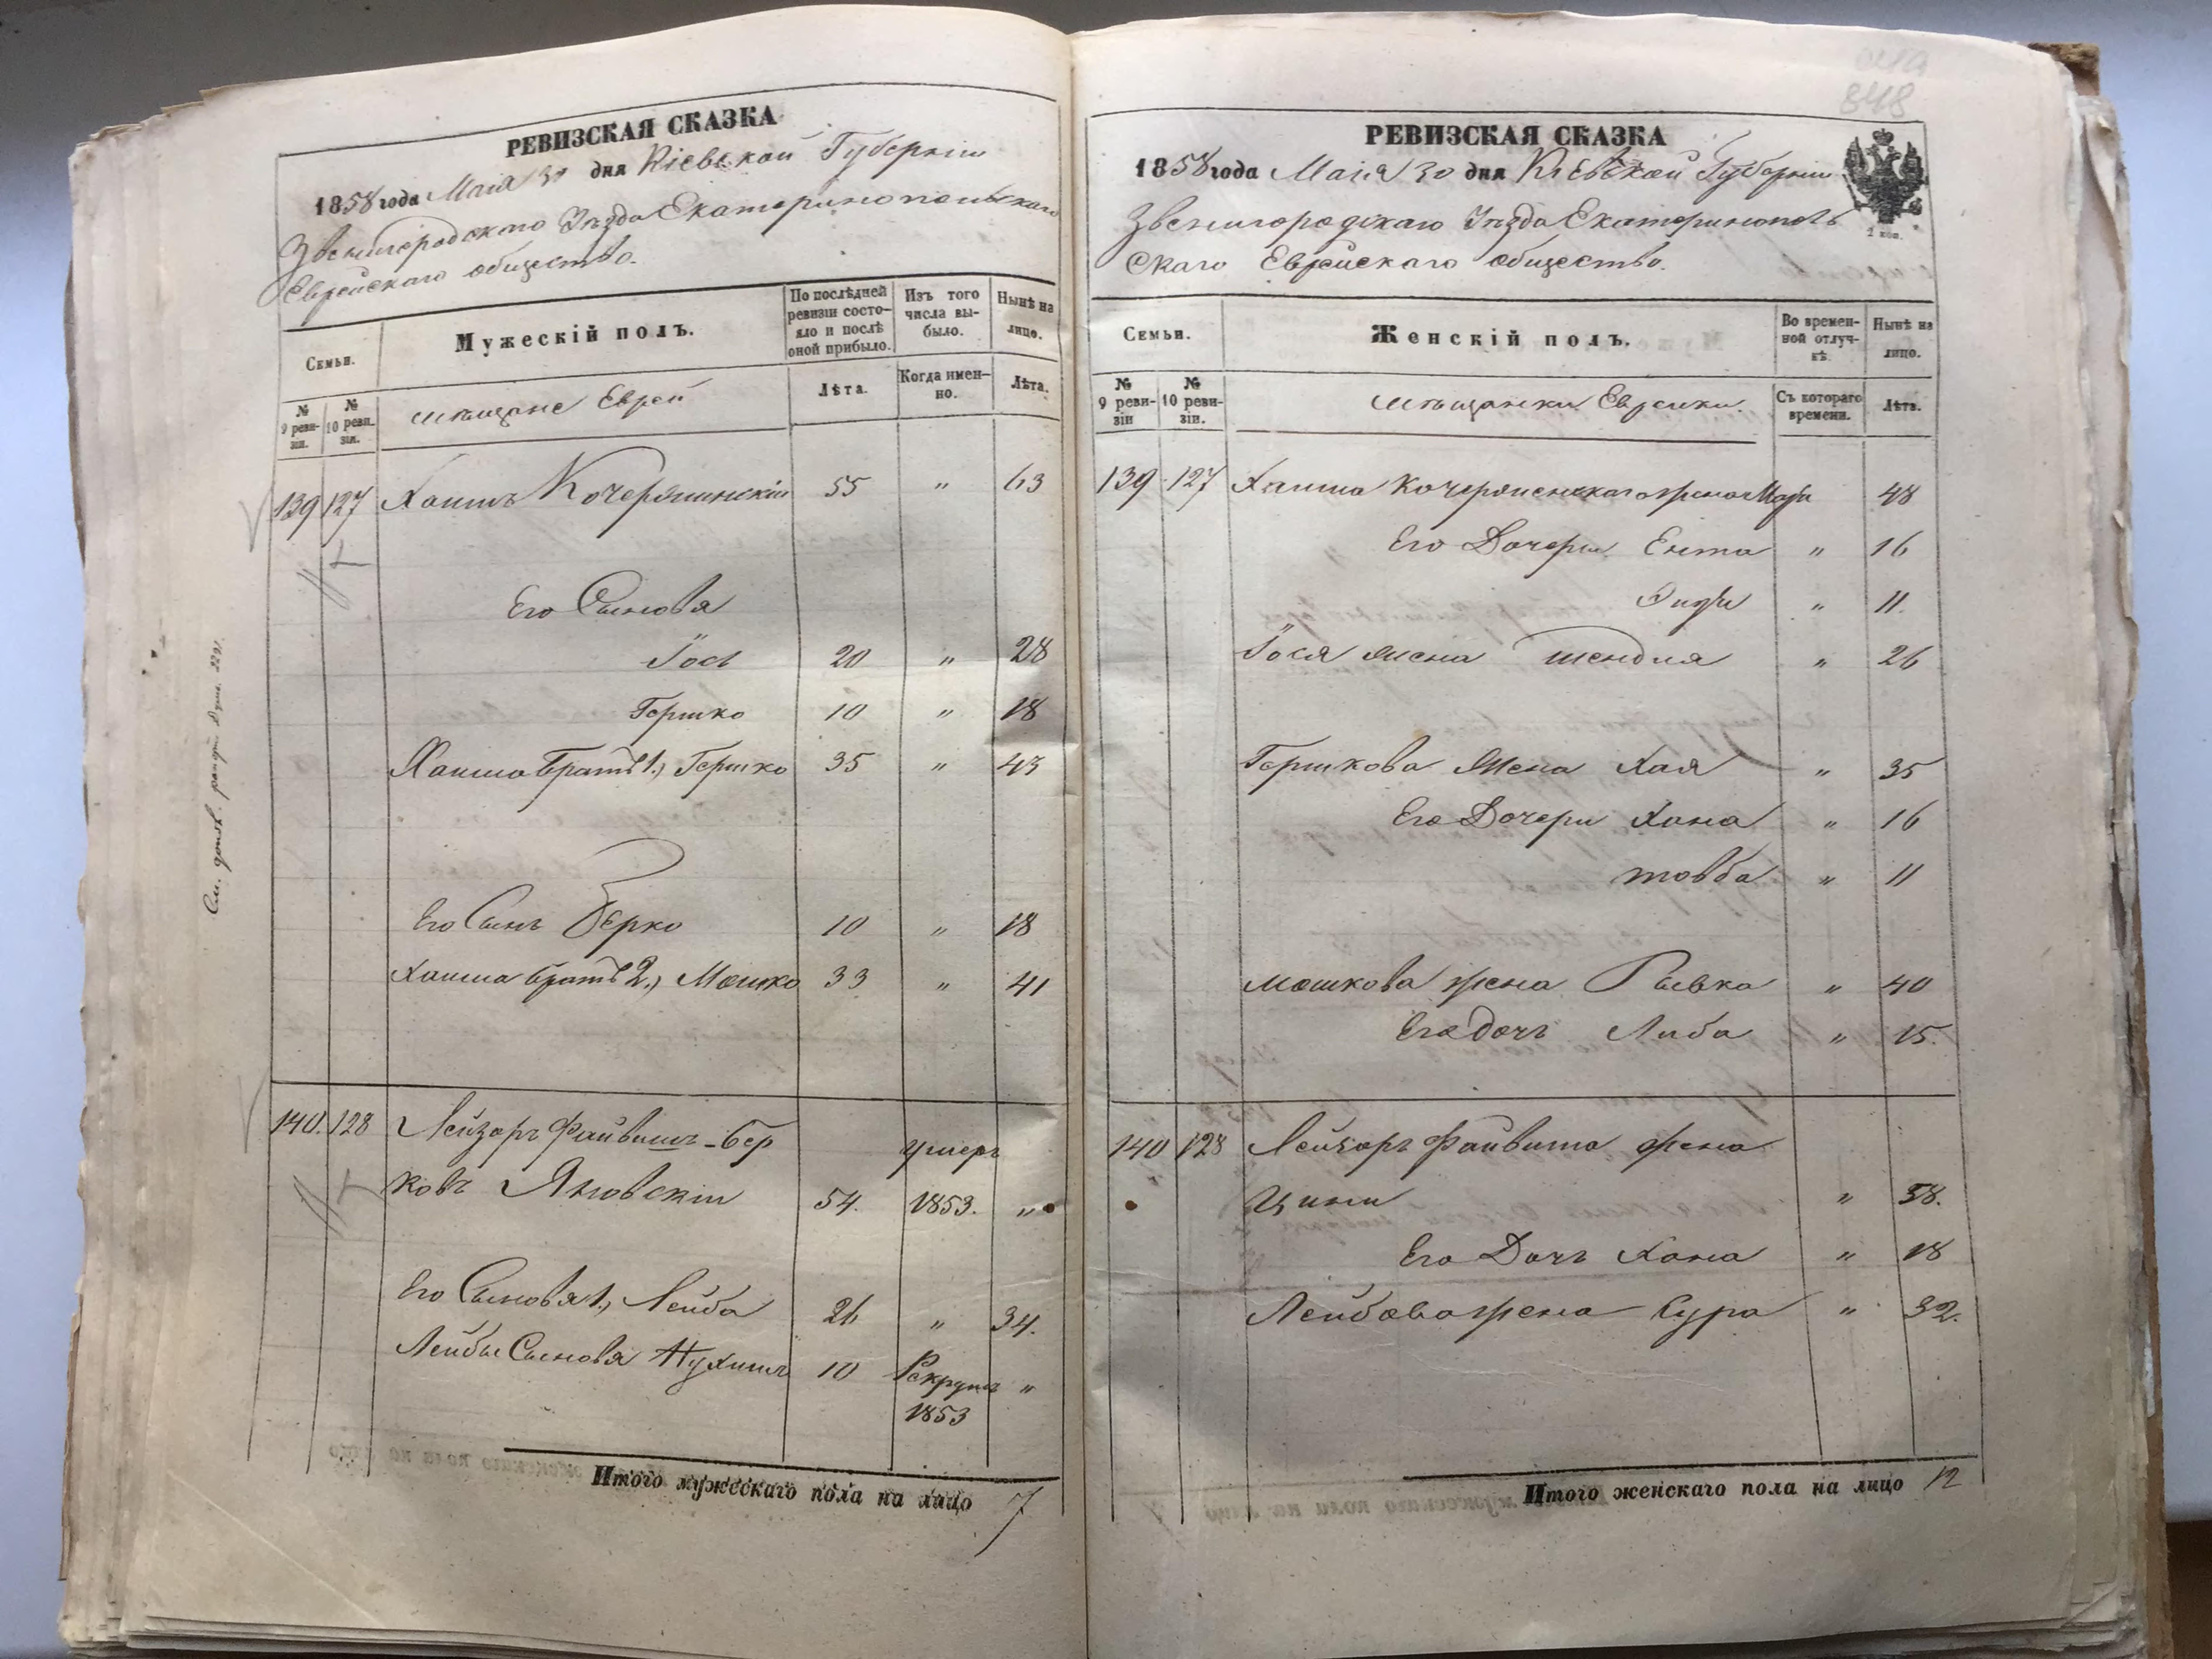 РЕВИЗСКАЯ СКАЗКА
1858 года Маія 30 дня Кіевской Губерніи
Звенигородскаго Уѣзда Екатеринопольскаго
Еврейскаго общества.
Семьи.
Мужескій полъ.
По послѣдней ревизіи состояло и послѣ оной прибыло.
Изъ того числа выбыло.
Нынѣ на лицо.
№ 9 ревизіи.
№ 10 ревизіи.
мѣщане Евреи
Лѣта.
Когда именно.
Лѣта.
139 127 Хаимъ Кочержинскій 55 " 63
Его Сыновя
Іось 20 " 28
Гершко 10 " 18
Хаима братъ 1., Гершко 35 " 43
Его Сынъ Берко 10 " 18
Хаима братъ 2., Мошко 33 " 41
140. 128 Лейзоръ Файвишъ-Бер умеръ
ковъ Яновскій 54. 1853. "
Его Сыновя 1., Лейба 26 " 34.
Лейбы Сыновя Нухимъ 10 Рекрутъ "
1853
Итого мужескаго пола на лицо 7
См. допол.
848
РЕВИЗСКАЯ СКАЗКА
1858 года Маія 30 дня Кіевской Губерніи
Звенигородскаго Уѣзда Екатеринополь
скаго Еврейскаго общества.
2 коп.
Семьи.
Женскій полъ.
Во временной отлучкѣ.
Нынѣ на лицо.
№ 9 ревизіи
№ 10 ревизіи.
мѣщанки Еврейки.
Съ котораго времени.
Лѣта.
139 127 Хаима Кочержинскаго жена 48
Его Дочери Ента " 16
" 11.
Іося жена Шендля " 26
Гершкова Жена Хая " 35
Его Дочери Хана " 16
товба " 11
мошкова жена Рывка " 40
Его дочъ Либа " 15.
140 128 Лейзоръ Файвиша жена
Ципи " 58.
Его Дочъ Хана " 18
Лейбова жена Сура " 32.
Итого женскаго пола на лицо 12